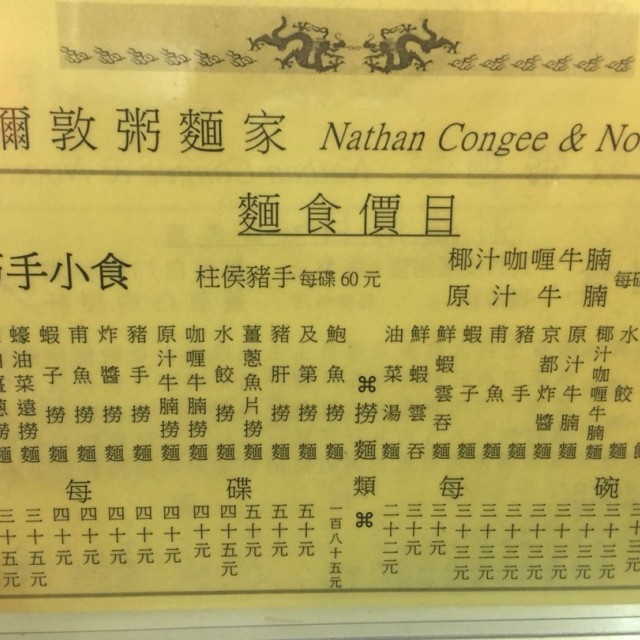 彌敦粥麵家 Nathan Congee & No
麵食價目
手小食
柱侯豬手每碟60元
椰汁咖喱牛腩
原汁牛腩
每碗
椰汁咖喱牛腩麵
原汁牛腩麵
京都炸醬麵
豬手麵
甫魚麵
蝦子麵
鮮蝦雲吞麵
鮮蝦雲吞
油菜湯麵
三十三元
三十三元
三十三元
三十三元
三十三元
三十三元
三十元
三十元
二十二元
⌘撈麵類⌘
每碟
鮑魚撈麵
及第撈麵
豬肝撈麵
薑蔥魚片撈麵
水餃撈麵
咖喱牛腩撈麵
原汁牛腩撈麵
豬手撈麵
炸醬撈麵
甫魚撈麵
蝦子撈麵
蠔油菜遠撈麵
一百八十五元
五十元
五十元
五十元
四十五元
四十元
四十元
四十元
四十元
四十元
四十元
三十五元
三十五元